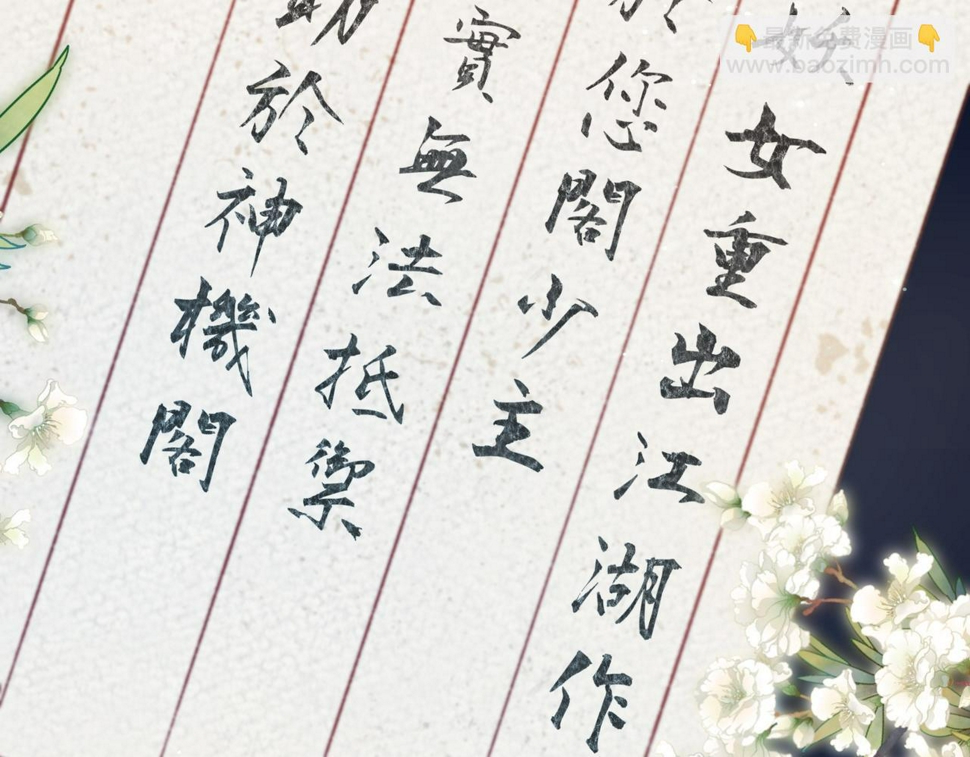 最新免费漫画
www.baozimh.com
女重出江湖作
於您閣少主
實無法抵禦
助於神機閣